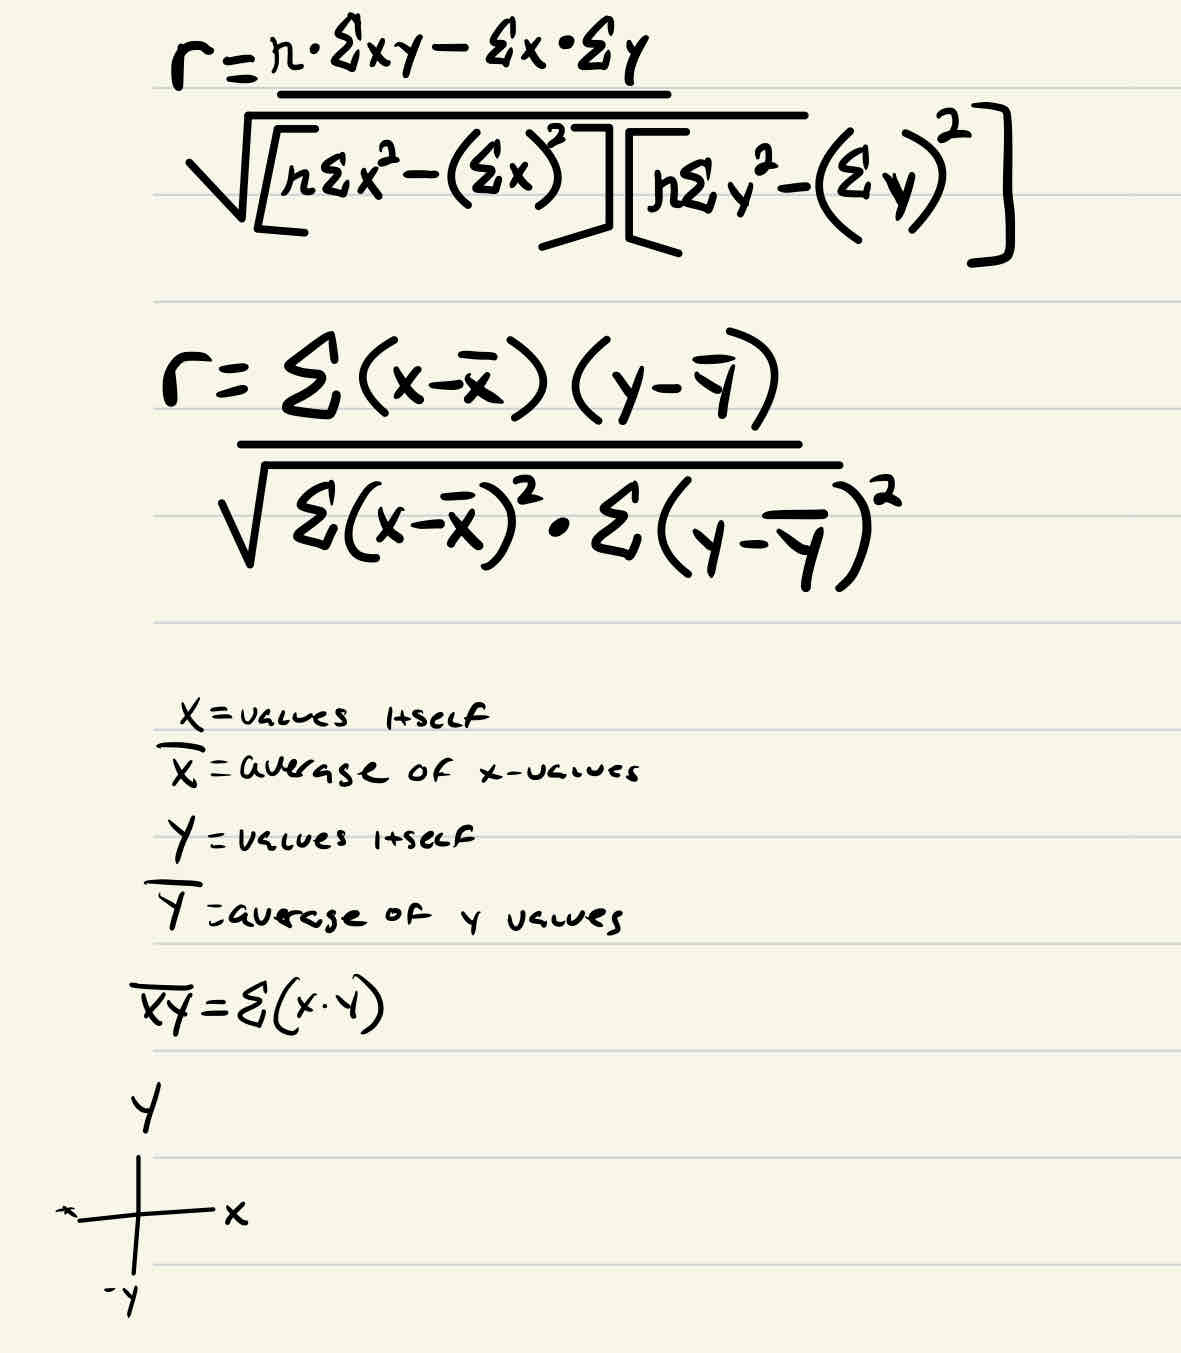 r = n·Σxy − Σx·Σy
√[nΣx² − (Σx)²][nΣy² − (Σy)²]
r = Σ(x−x̅)(y−y̅)
√Σ(x−x̅)²·Σ(y−y̅)²
x = values itself
x̅ = average of x-values
y = values itself
y̅ = average of y values
x̅y̅ = Σ(x·y)
y
-x x
-y